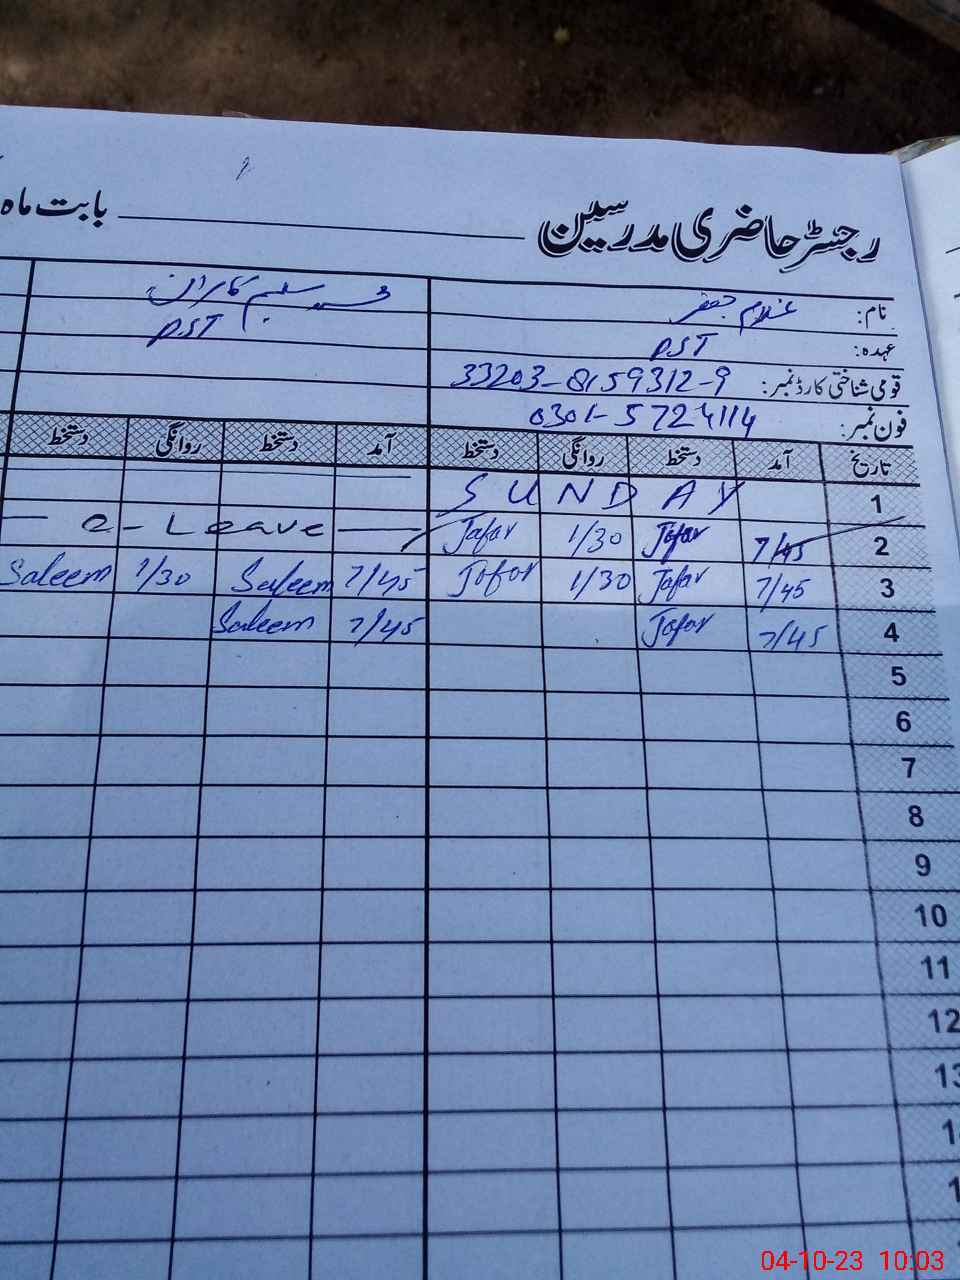 رجسٹر حاضری مدرسین ــــــــ بابت ماہ
نام: غلام جعفر محمد سلیم کامران
عہدہ: PST PST
قومی شناختی کارڈ نمبر: 33203-8159312-9
فون نمبر: 0301-5724114
تاریخ آمد دستخط روانگی دستخط آمد دستخط روانگی دستخط
1 SUNDAY
2 7/45 Jafar 1/30 Jafar — e-Leave —
3 7/45 Jafar 1/30 Jafar 7/45 Saleem 1/30 Saleem
4 7/45 Jafar 7/45 Saleem
5
6
7
8
9
10
11
12
13
04-10-23 10:03